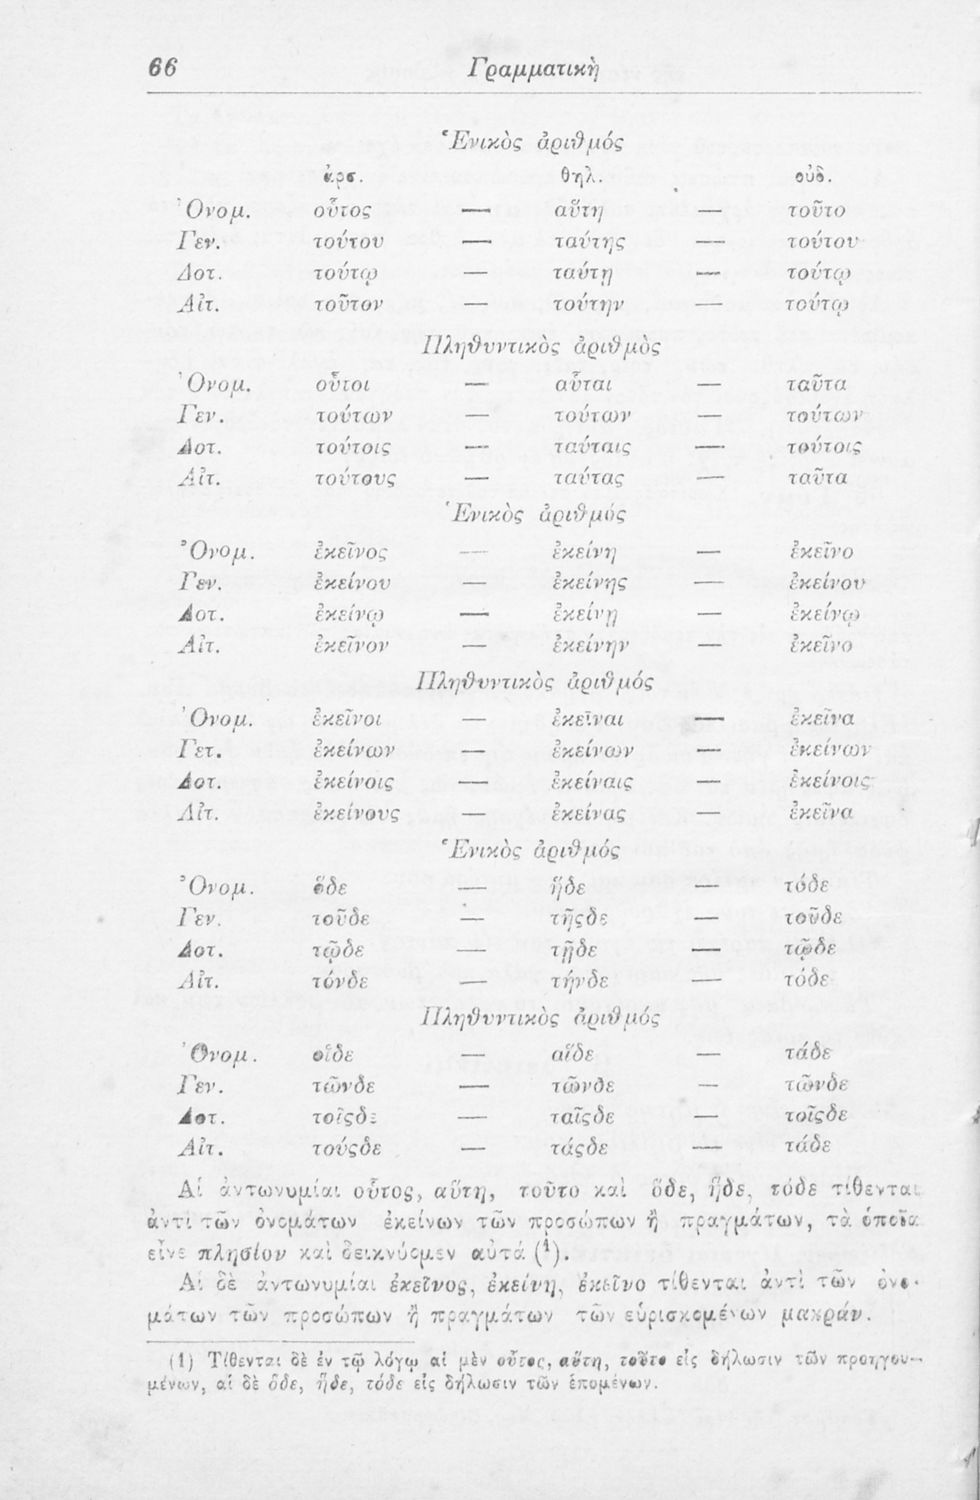 66 Γραμματικὴ
Ἑνικὸς ἀριθμός
ἀρσ. θηλ. οὐδ.
Ὀνομ. οὗτος — αὕτη — τοῦτο
Γεν. τούτου — ταύτης — τούτου
Δοτ. τούτῳ — ταύτῃ — τούτῳ
Αἰτ. τοῦτον — τούτην — τούτῳ
Πληθυντικὸς ἀριθμὸς
Ὀνομ. οὗτοι — αὗται — ταῦτα
Γεν. τούτων — τούτων — τούτων
Δοτ. τούτοις — ταύταις — τούτοις
Αἰτ. τούτους — ταύτας — ταῦτα
Ἑνικὸς ἀριθμός
Ὀνομ. ἐκεῖνος — ἐκείνη — ἐκεῖνο
Γεν. ἐκείνου — ἐκείνης — ἐκείνου
Δοτ. ἐκείνῳ — ἐκείνῃ — ἐκείνῳ
Αἰτ. ἐκεῖνον — ἐκείνην — ἐκεῖνο
Πληθυντικὸς ἀριθμός
Ὀνομ. ἐκεῖνοι — ἐκεῖναι — ἐκεῖνα
Γετ. ἐκείνων — ἐκείνων — ἐκείνων
Δοτ. ἐκείνοις — ἐκείναις — ἐκείνοις
Αἰτ. ἐκείνους — ἐκείνας — ἐκεῖνα
Ἑνικὸς ἀριθμός
Ὀνομ. ὅδε — ἥδε — τόδε
Γεν. τοῦδε — τῆςδε — τοῦδε
Δοτ. τῷδε — τῇδε — τῷδε
Αἰτ. τόνδε — τήνδε — τόδε
Πληθυντικὸς ἀριθμός
Ὀνομ. οἵδε — αἵδε — τάδε
Γεν. τῶνδε — τῶνδε — τῶνδε
Δοτ. τοῖςδε — ταῖςδε — τοῖςδε
Αἰτ. τούςδε — τάςδε — τάδε
Αἱ ἀντωνυμίαι οὗτος, αὕτη, τοῦτο καὶ ὅδε, ἥδε, τόδε τίθενται
ἀντὶ τῶν ὀνομάτων ἐκείνων τῶν προσώπων ἢ πραγμάτων, τὰ ὁποῖα
εἶνε πλησίον καὶ δεικνύομεν αὐτά (1).
Αἱ δὲ ἀντωνυμίαι ἐκεῖνος, ἐκείνη, ἐκεῖνο τίθενται ἀντὶ τῶν ὀνο-
μάτων τῶν προσώπων ἢ πραγμάτων τῶν εὑρισκομένων μακράν.
(1) Τίθενται δὲ ἐν τῷ λόγῳ αἱ μὲν οὗτος, αὕτη, τοῦτο εἰς δήλωσιν τῶν προηγου-
μένων, αἱ δὲ ὅδε, ἥδε, τόδε εἰς δήλωσιν τῶν ἑπομένων.